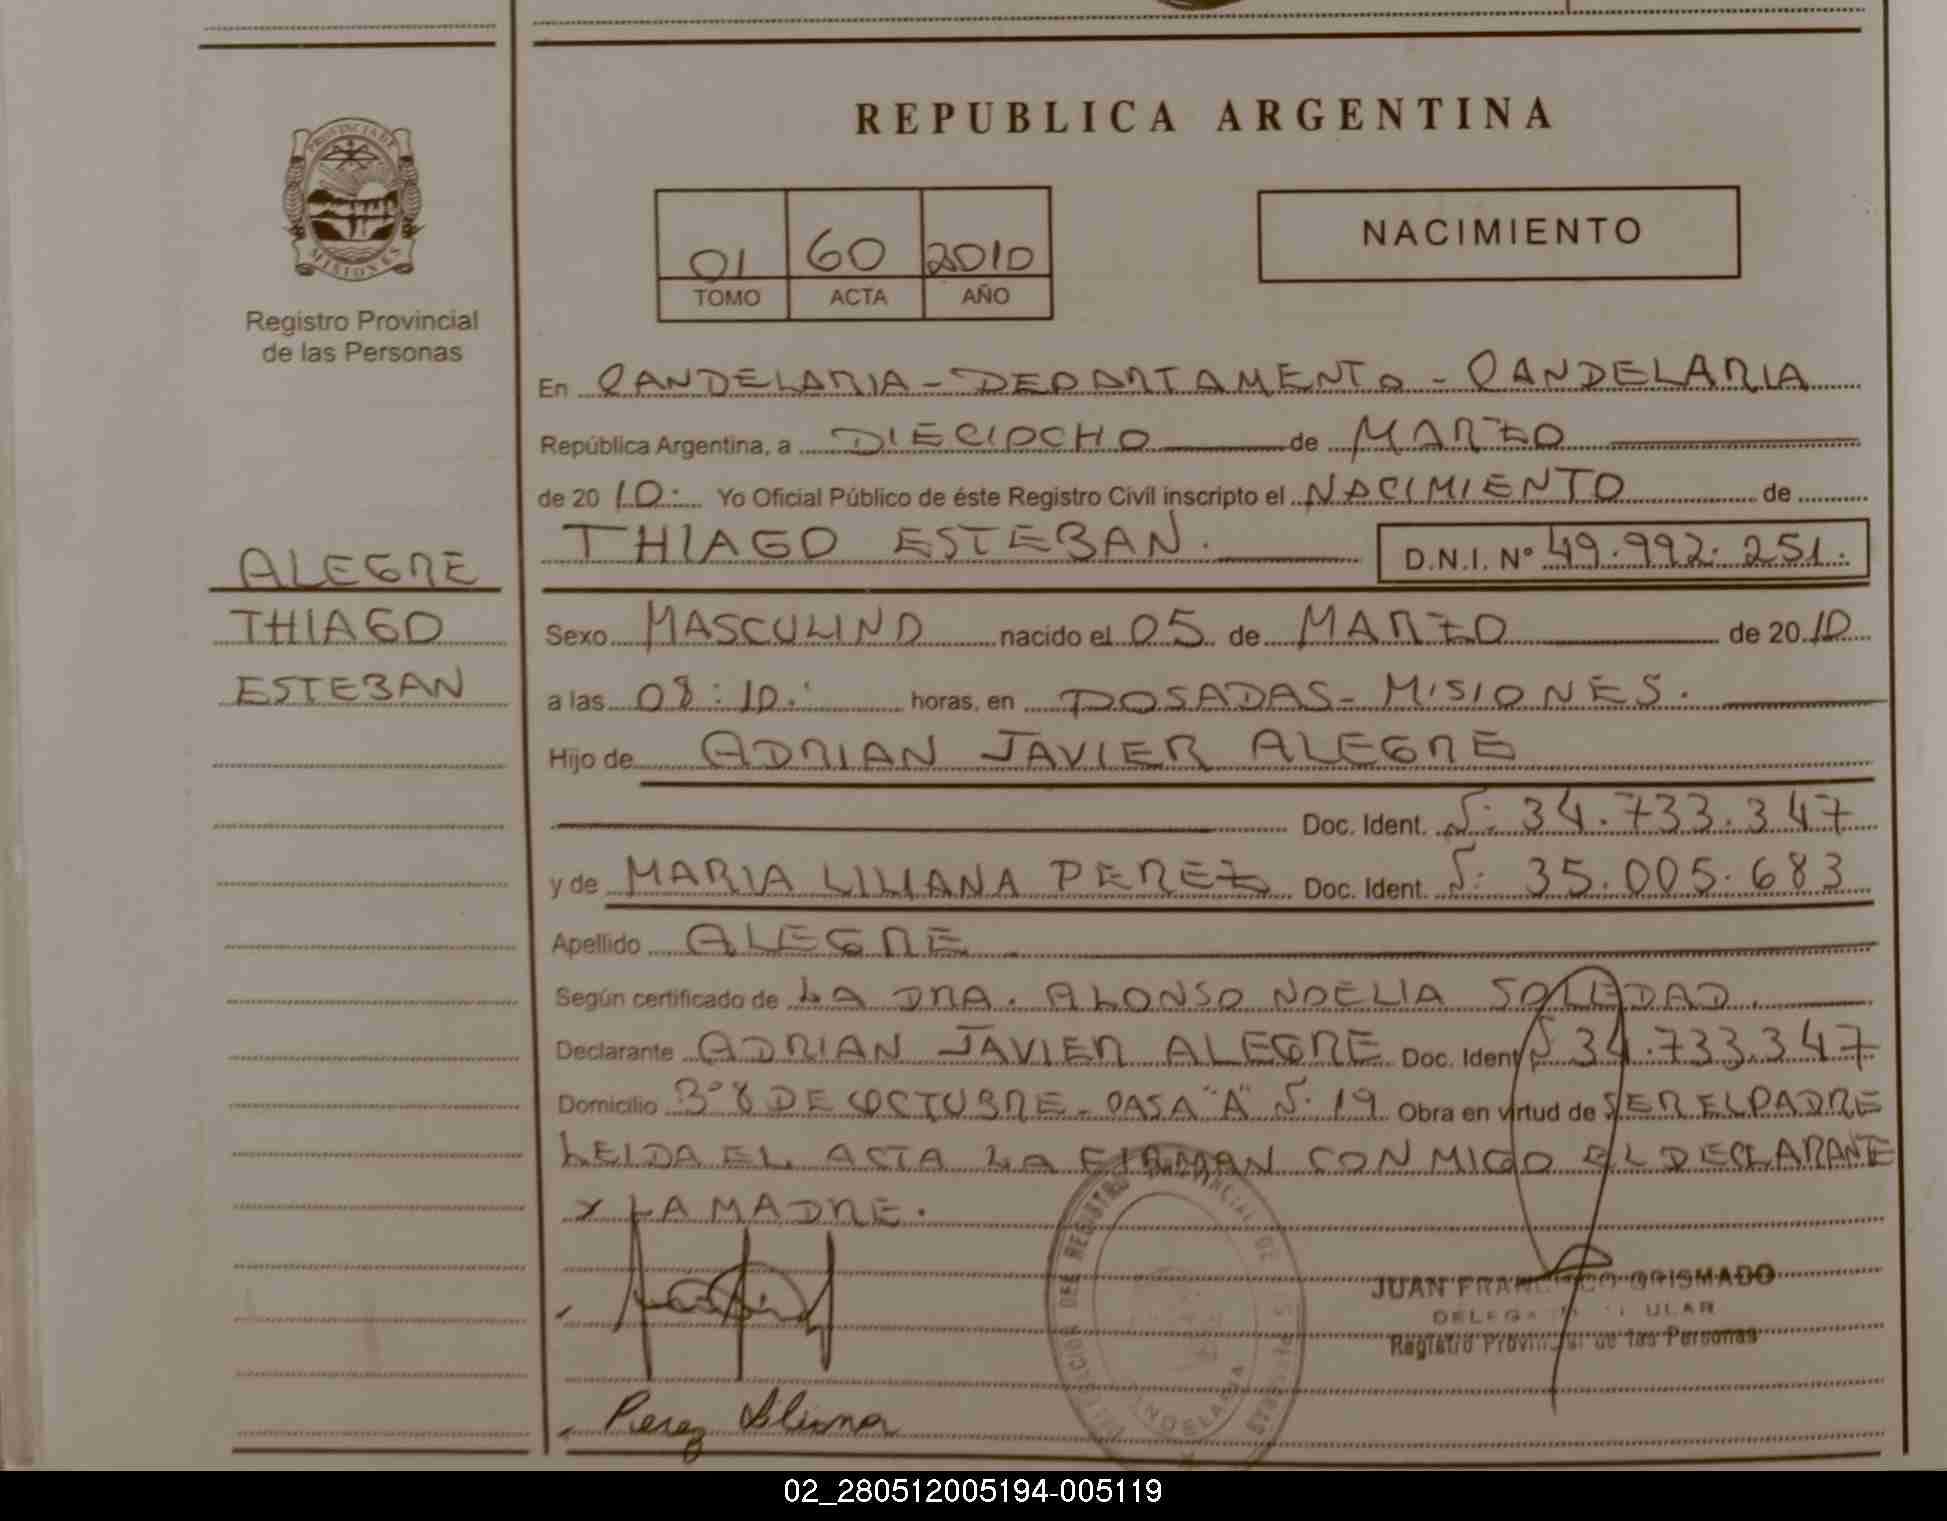 REPUBLICA ARGENTINA
PROVINCIA DE
MISIONES
Registro Provincial
de las Personas
01 60 2010
TOMO ACTA AÑO
NACIMIENTO
En CANDELARIA - DEPARTAMENTO - CANDELARIA
República Argentina, a DIECIOCHO de MARZO
de 2010. Yo Oficial Público de éste Registro Civil inscripto el NACIMIENTO de
THIAGO ESTEBAN. D.N.I. Nº 49.992.251.
ALEGRE
THIAGO
ESTEBAN
Sexo MASCULINO nacido el 05 de MARZO de 2010
a las 08:10. horas, en POSADAS - MISIONES.
Hijo de ADRIAN JAVIER ALEGRE
Doc. Ident. Nº 34.733.347
y de MARIA LILIANA PEREZ Doc. Ident. Nº 35.005.683
Apellido ALEGRE
Según certificado de LA DRA. ALONSO NOELIA SOLEDAD.
Declarante ADRIAN JAVIER ALEGRE Doc. Ident Nº 34.733.347
Domicilio Bº 8 DE OCTUBRE - CASA "A" Nº 19 Obra en virtud de SER EL PADRE
LEIDA EL ACTA LA FIRMAN CONMIGO EL DECLARANTE
Y LA MADRE.
JUAN FRANCISCO GRISMADO
Registro Provincial de las Personas
Perez Liliana
02_280512005194-005119